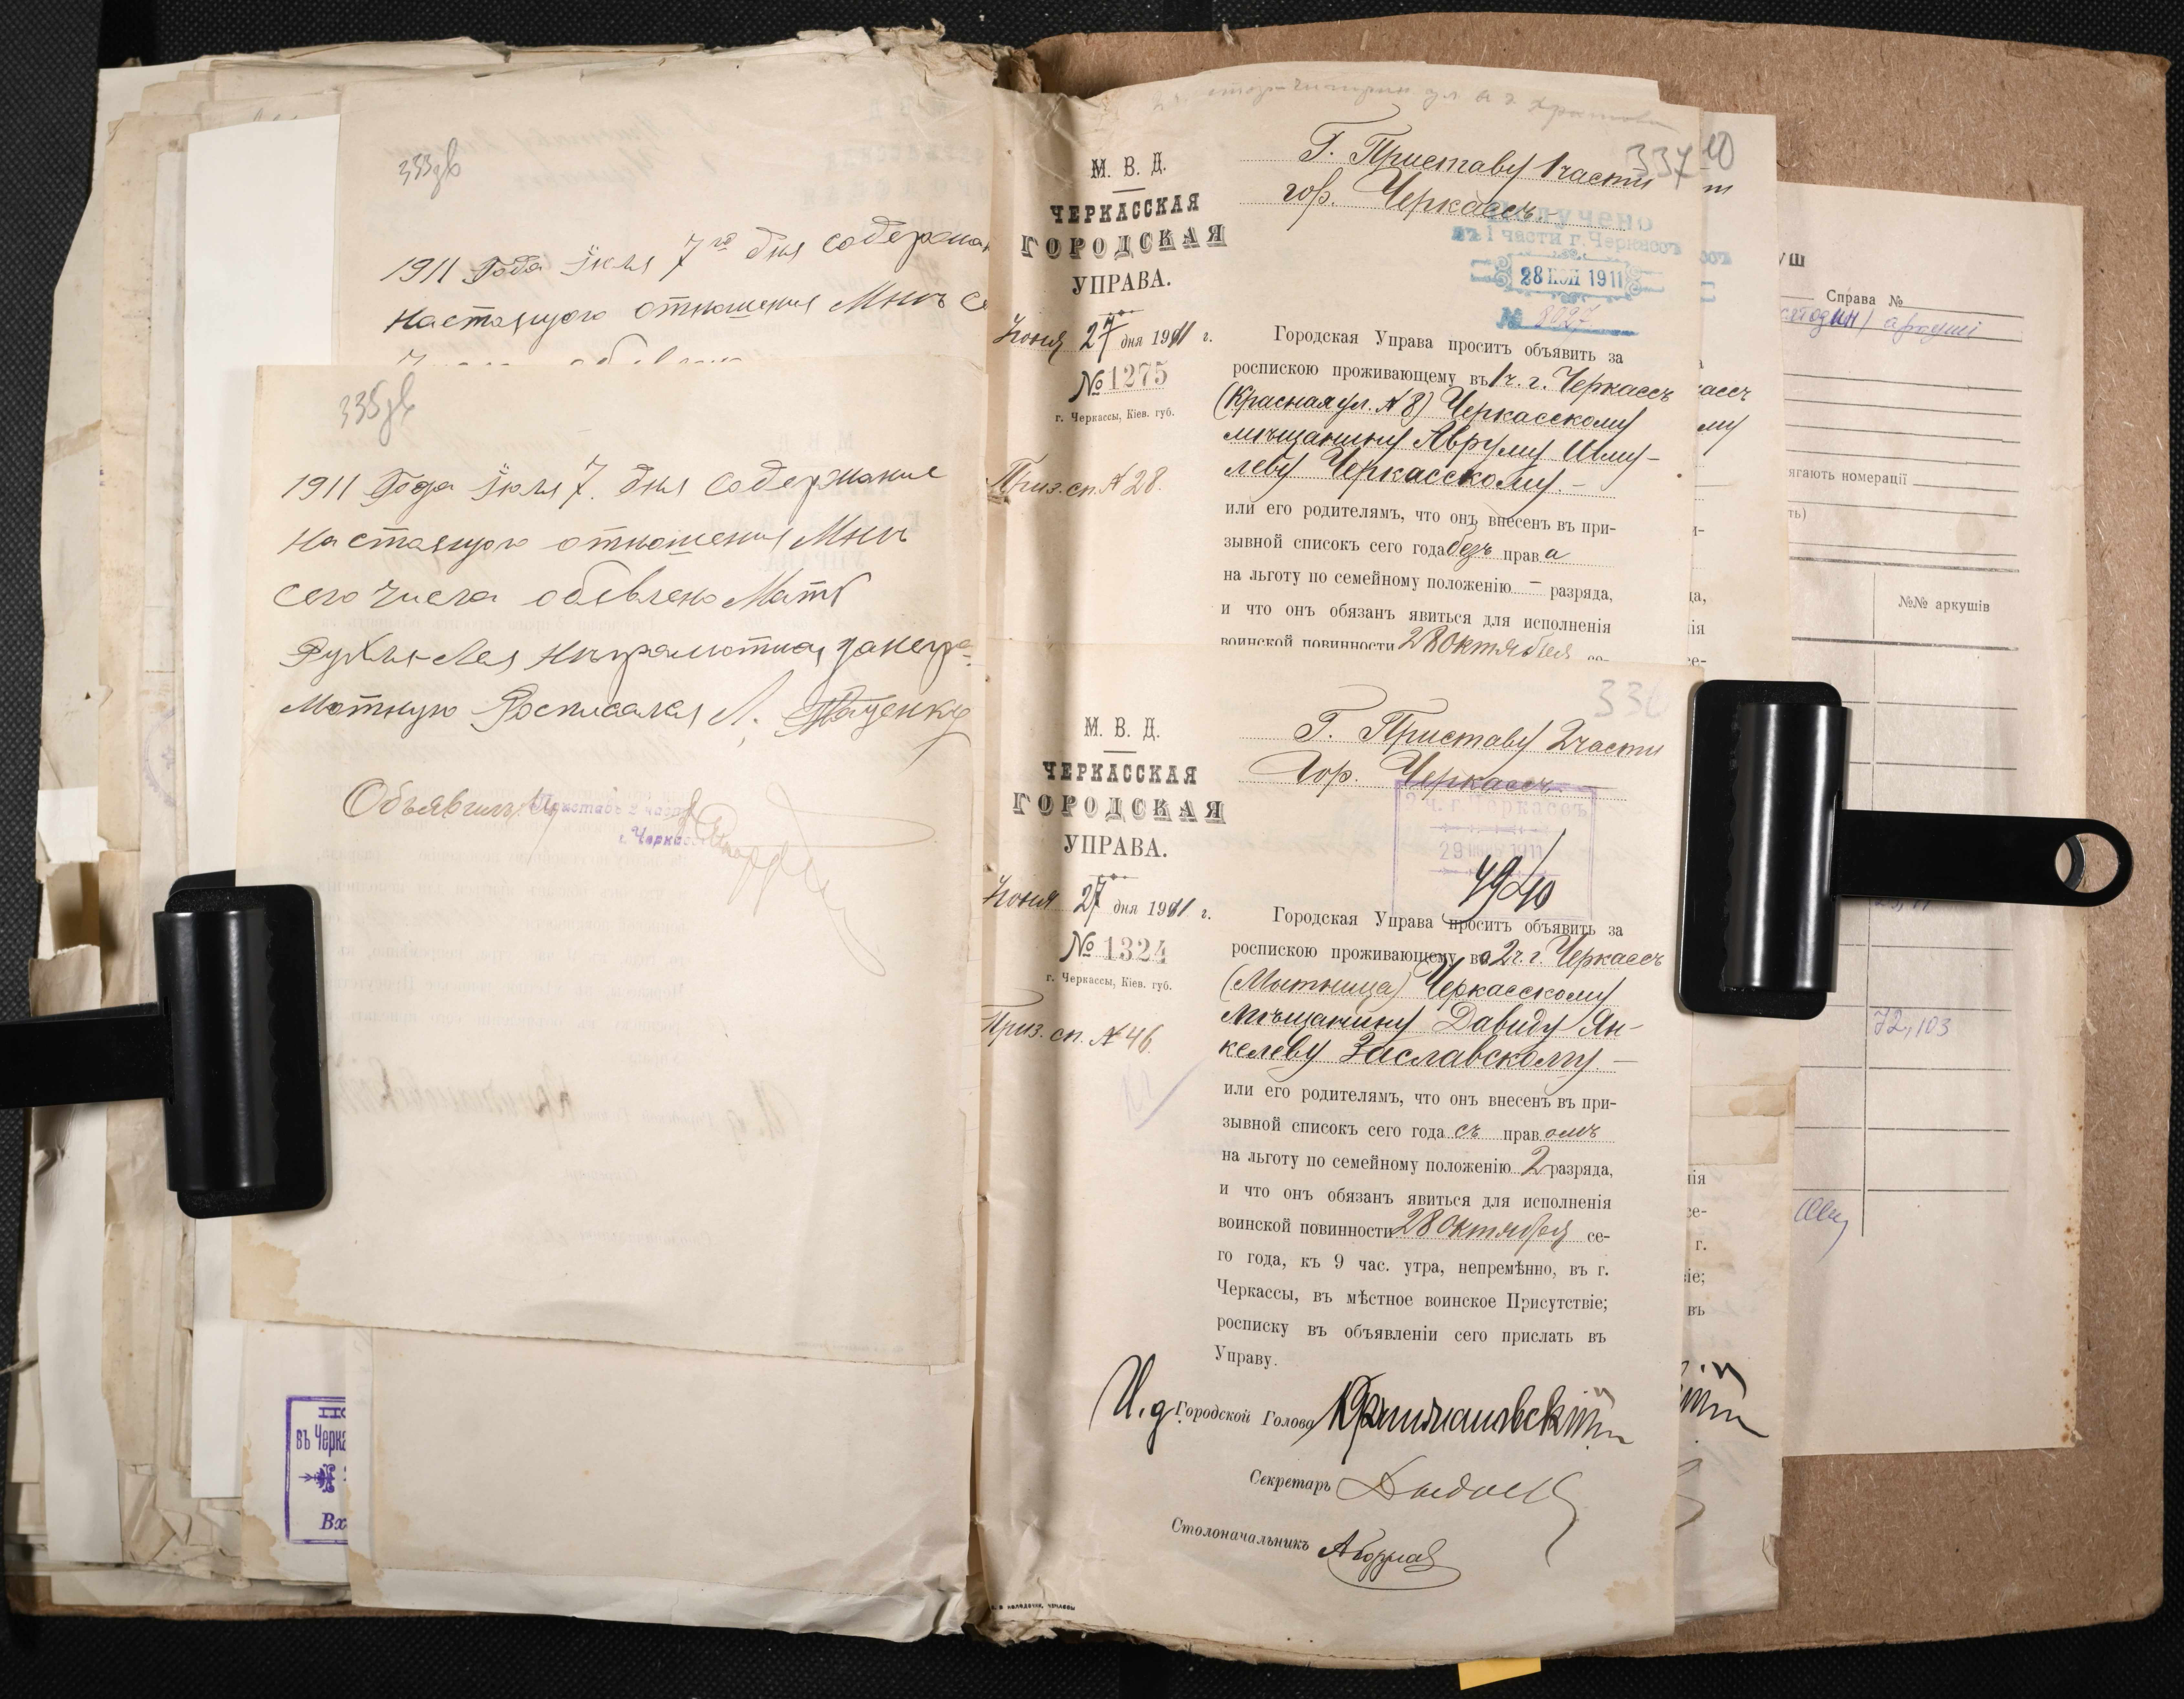 333зв
1911 Года Іюля 7го дня содержан
настоящого отношения Мнѣ се
335зв
1911 Года Іюля 7. дня Содержание
настоящого отношения Мнѣ
сего числа обевлено Мать
Рухля-Лея Неграмотная, занегра-
мотную Росписался Л.
Объявилъ
Приставъ 2 части
г. Черкассъ
въ Черка
Вх
337
М. В. Д.
ЧЕРКАССКАЯ
ГОРОДСКАЯ
УПРАВА.
Іюня 27 дня 1911 г.
№ 1275
г. Черкассы, Кіев. губ.
Приз. сп. № 28.
Г. Приставу 1 части
гор. Черкассъ.
Получено
въ 1 части г. Черкассъ
28 ІЮН 1911
№ 8027
Городская Управа проситъ объявить за
роспискою проживающему въ 1 ч. г. Черкассъ
(Красная ул. № 8) Черкасскому
мѣщанину Аврулю Шлиу-
леву Черкасскому. -
или его родителямъ, что онъ внесенъ въ при-
зывной списокъ сего года безъ права
на льготу по семейному положенію - разряда,
и что онъ обязанъ явиться для исполненія
воинской повинности 28 Октября се-
336
М. В. Д.
ЧЕРКАССКАЯ
ГОРОДСКАЯ
УПРАВА.
Іюня 27 дня 1911 г.
№ 1324
г. Черкассы, Кіев. губ.
Приз. сп. № 46.
Г. Приставу 2 части
Гор. Черкассъ
2 ч. г. Черкассъ
29 1911
4940
Городская Управа проситъ объявить за
роспискою проживающему во 2 ч. г. Черкассъ
(Мытница) Черкасскому
мѣщанину Давиду Ян-
келеву Заславскому. -
или его родителямъ, что онъ внесенъ въ при-
зывной списокъ сего года съ правомъ
на льготу по семейному положенію 2 разряда,
и что онъ обязанъ явиться для исполненія
воинской повинности 28 Октября се-
го года, къ 9 час. утра, непремѣнно, въ г.
Черкассы, въ мѣстное воинское Присутствіе;
росписку въ объявленіи сего прислать въ
Управу.
И. д. Городской Голова
Секретарь
Столоначальникъ
Справа №
аркуші
ягають номерації
№№ аркушів
72, 103